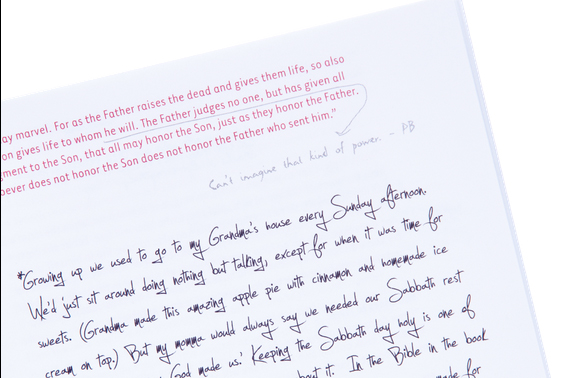 ay marvel. For as the Father raises the dead and gives them life, so also
on gives life to whom he will. The Father judges no one, but has given all
gment to the Son, that all may honor the Son, just as they honor the Father.
oever does not honor the Son does not honor the Father who sent him."
Can't imagine that kind of power. - PB
*Growing up we used to go to my Grandma's house every Sunday afternoon.
We'd just sit around doing nothing but talking, except for when it was time for
sweets. (Grandma made this amazing apple pie with cinnamon and homemade ice
cream on top.) But my momma would always say we needed our Sabbath rest
God made us.' Keeping the Sabbath day holy is one of
it. In the Bible in the book
made for